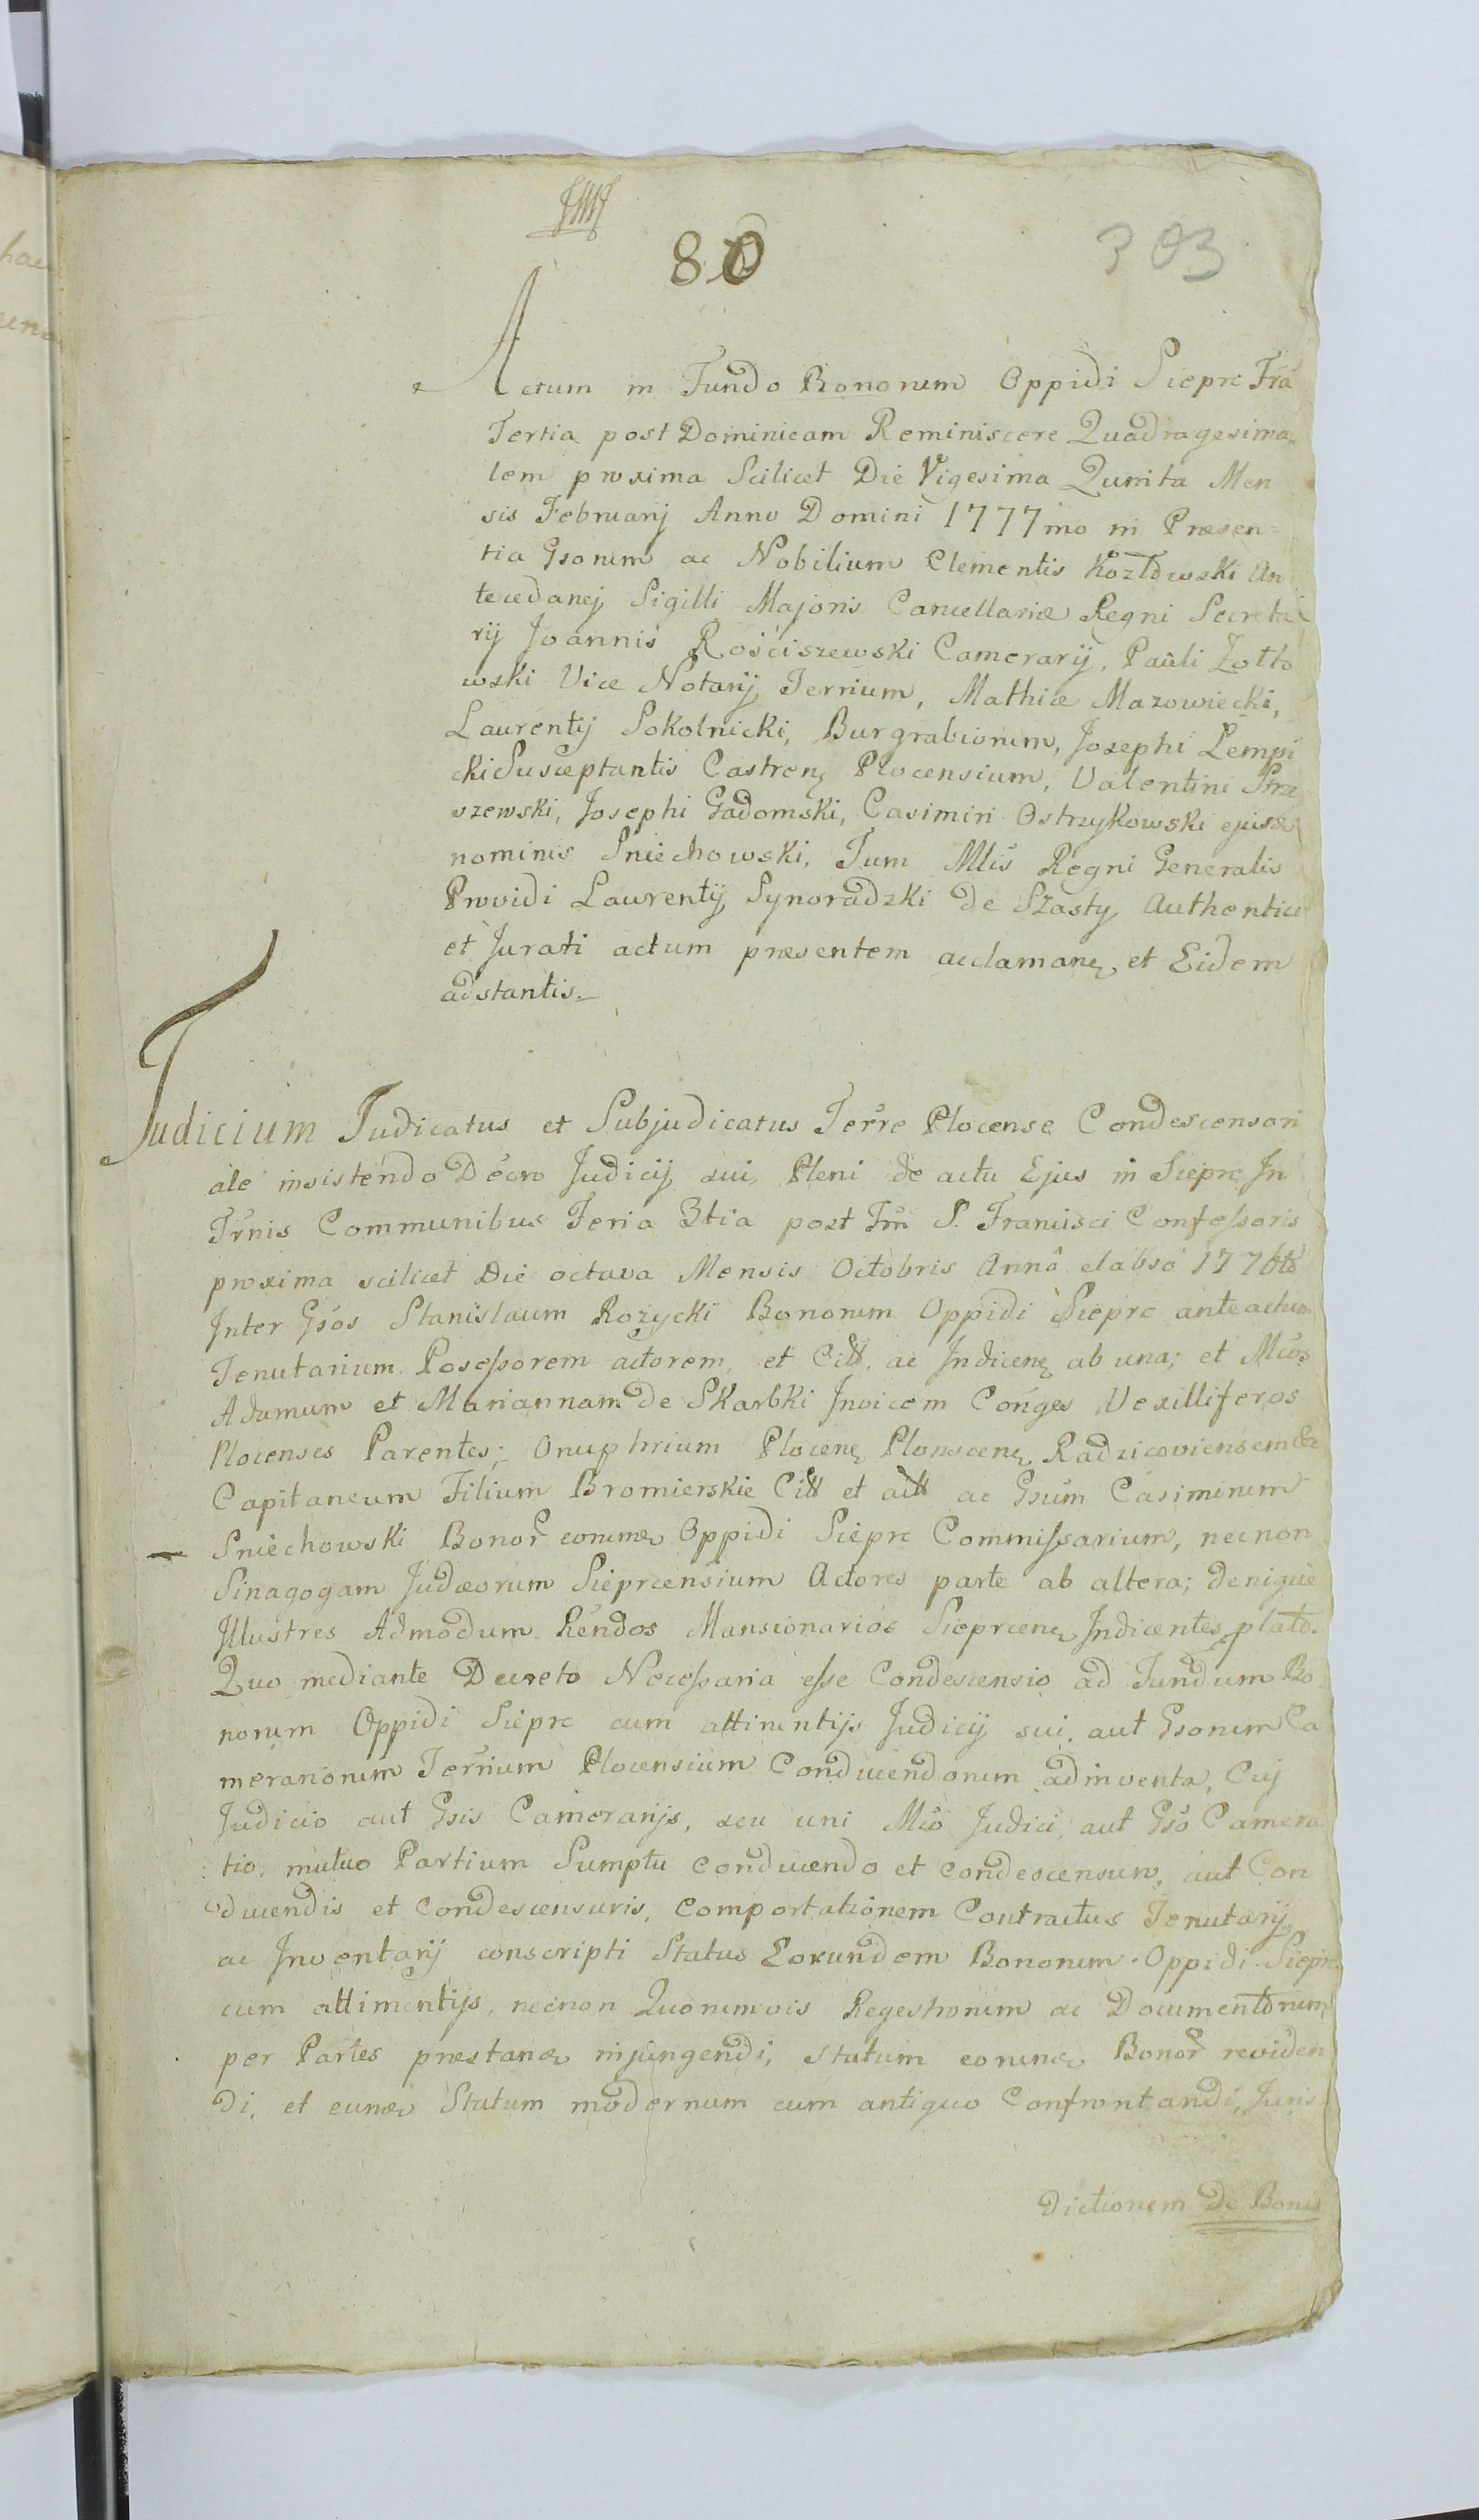 80
303
Actum in Fundo Bonorum Oppidi Sieprc Fra
Tertia post Dominicam Reminiscere Quadragesima
lem proxima Scilicet Die Vigesima Quinta Men
sis Februarij Anno Domini 1777mo in Præsen=
tia Gsorum ac Nobilium Clementis Kozłowski An
tecedanej Sigilli Majoris Cancellariæ Regni Secreta
rij Joannis Rościszewski Camerarij, Pauli Zołto
wski Vice Notarij Terrium, Mathiæ Mazowiecki,
Laurentij Sokolnicki, Burgrabiorum, Josephi Lempi
cki Susceptantis Castren Plocensium, Valentini
szewski, Josephi Gadomski, Casimiri Ostrzykowski
nominis Sniechowski, Tum Mlis Regni Generalis
Providi Laurentij Synoradzki de Szasty Authentici
et Jurati actum præsentem acclaman et Eidem
adstantis.
Judicium Judicatus et Subjudicatus Terre Plocense Condescensori
ale insistendo Decro Judicij sui Pleni de actu Ejus in Sieprc In
Trnis Communibus Feria 3tia post Fm S. Francisci Confessoris
proxima scilicet Die octava Mensis Octobris Anno elabso 1776to
Inter Gsos Stanislaum Rozycki Bonorum Oppidi Sieprc anteactum
Tenutarium Posessorem actorem, et Citt, ac Indicen ab una; et Mcos
Adamum et Mariannam de Skarbki Invicem Conges Vexilliferos
Plocenses Parentes; Onuphrium Plocen Plonscen Radzicoviensem &c
Capitaneum Filium Bromierskie Citt et actt ac Gsum Casimirum
Sniechowski Bonor eorum Oppidi Sieprc Commissarium, necnon
Sinagogam Judæorum Sieprcensium Actores parte ab altera; denique
Illustres Admodum Rendos Mansionarios Sieprcen Indicentes plato.
Quo mediante Decreto Necessaria esse Condescensio ad Fundum Bo
norum Oppidi Sieprc cum attinentijs Judicij sui, aut Gsorum Ca
merariorum Terrium Plocensium Conducendorum adinventa, Cuj
Judicio aut Gsis Camerarijs, seu uni Mco Judici, aut Gso Camera
rio, mutuo Partium Sumptu conducendo et condescensuro, aut Con
ducendis et Condescensuris, Comportationem Contractus Tenutarij
ac Inventarij conscripti Status Eorundem Bonorum Oppidi Sieprc
cum attinentijs, necnon Quorumvis Regestrorum ac Documentorum
per Partes præstan injungendi, Statum eorum Bonor reviden
di, et eum Statum modernum cum antiquo Confrontandi, Juris
dictionem de Bonis